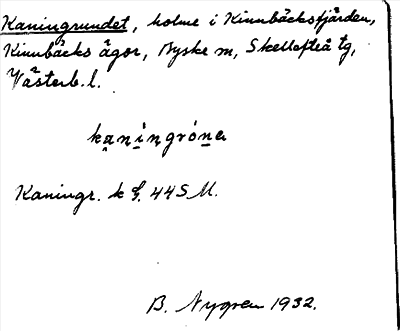 Kaningrundet, holme i Kinnbäcksfjärden,
Kinnbäcks ägor, Byske sn, Skellefteå tg,
Västerb. l.
kaningróna
Kaningr. k 44 S M.
B. Nygren 1932.